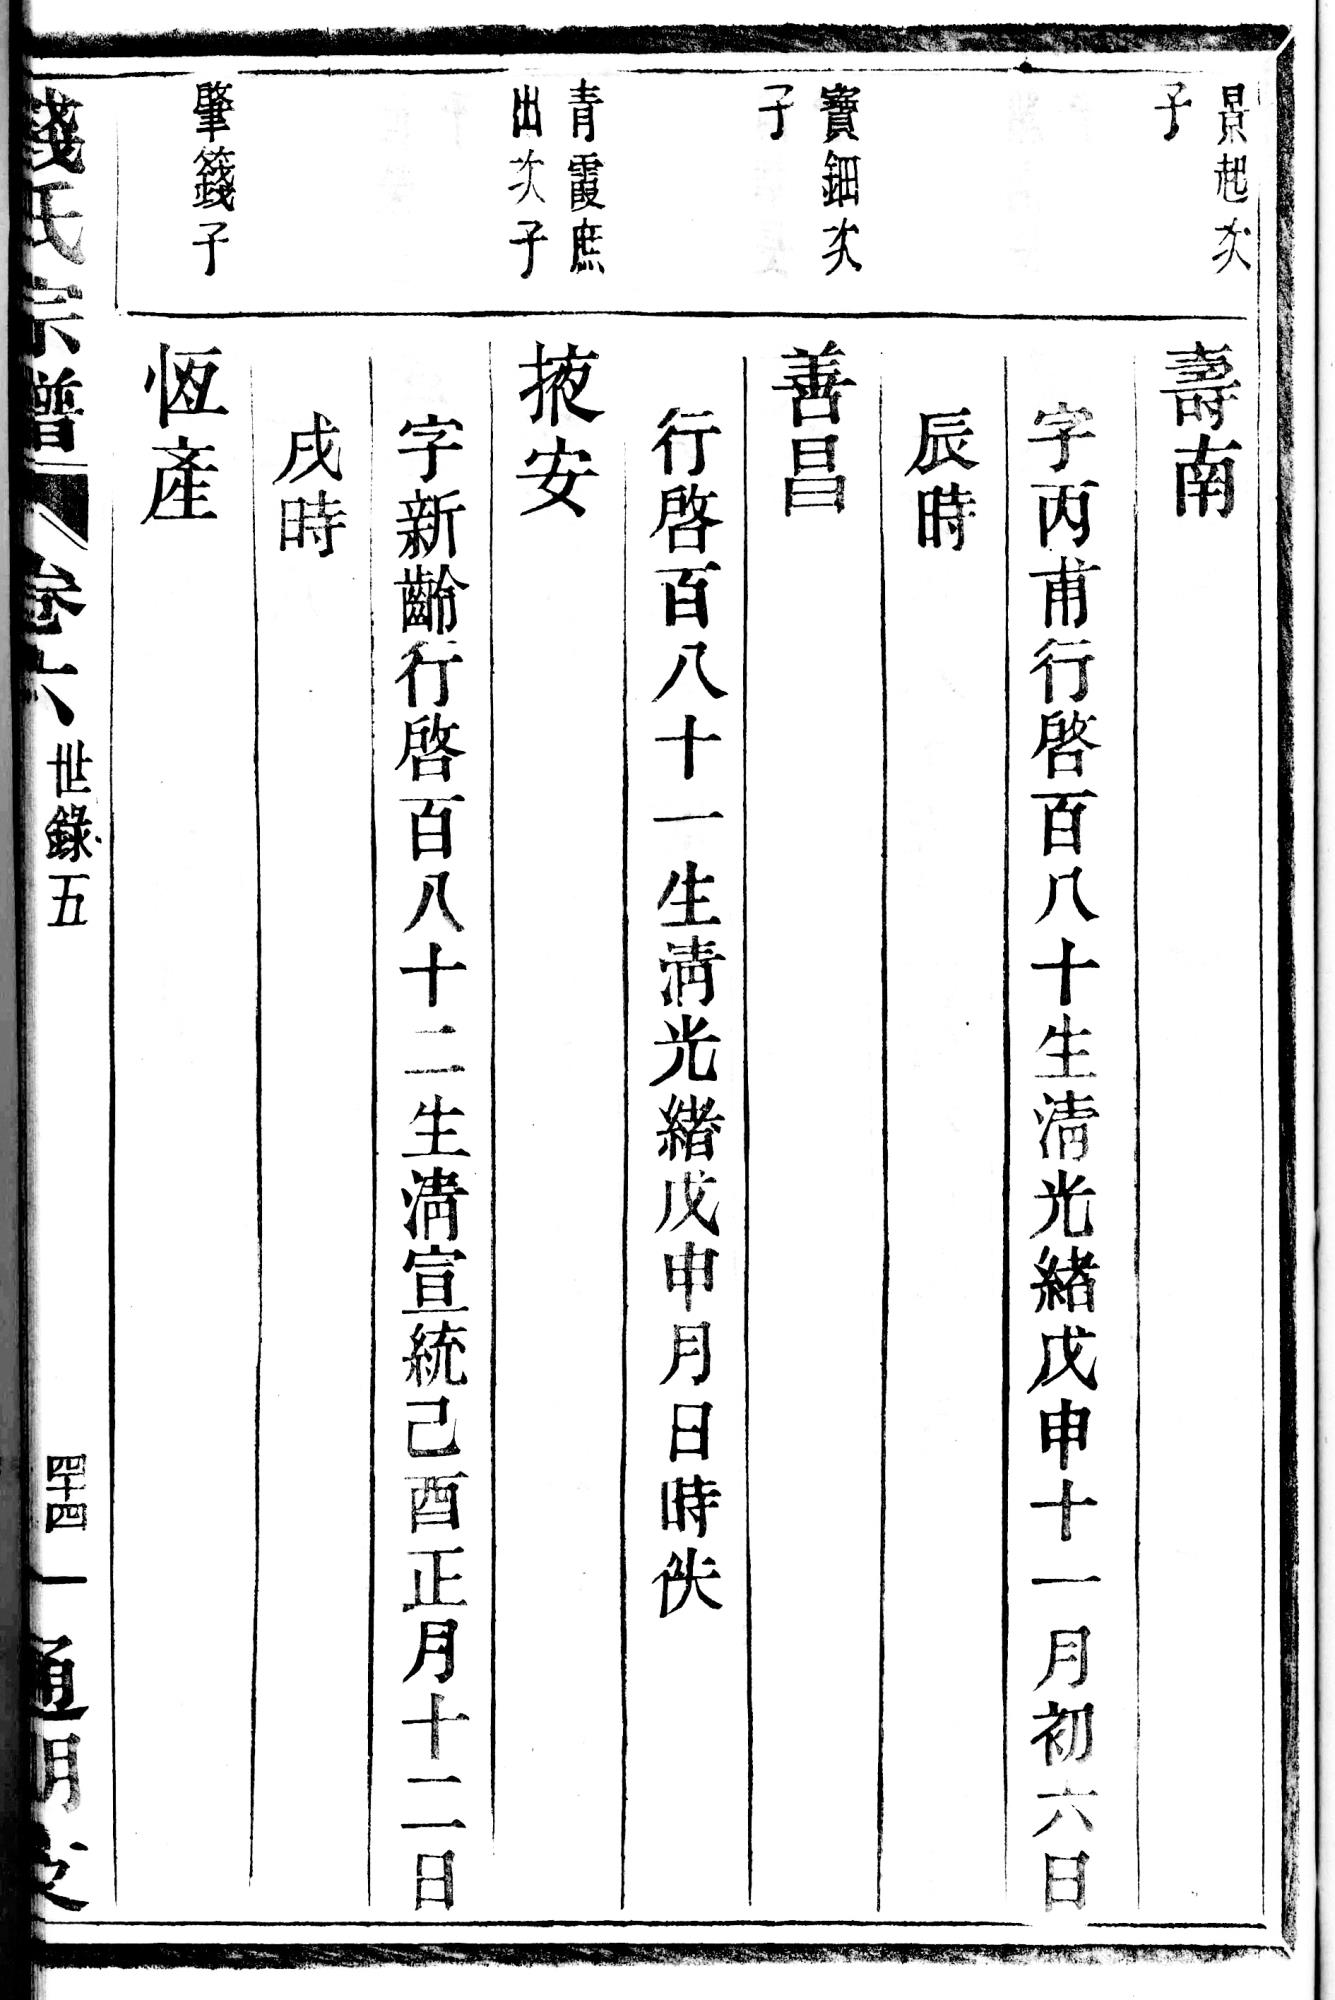 景起次
子
壽南
字丙甫行啓百八十生清光緒戊申十一月初六日
辰時
寶鈿次
子
善昌
行啓百八十一生清光緒戊申月日時佚
青霞庶
出次子
掖安
字新齡行啓百八十二生清宣統己酉正月十二日
戌時
肇籛子
恆產
錢氏宗譜
卷六
世錄五
四十四
通明